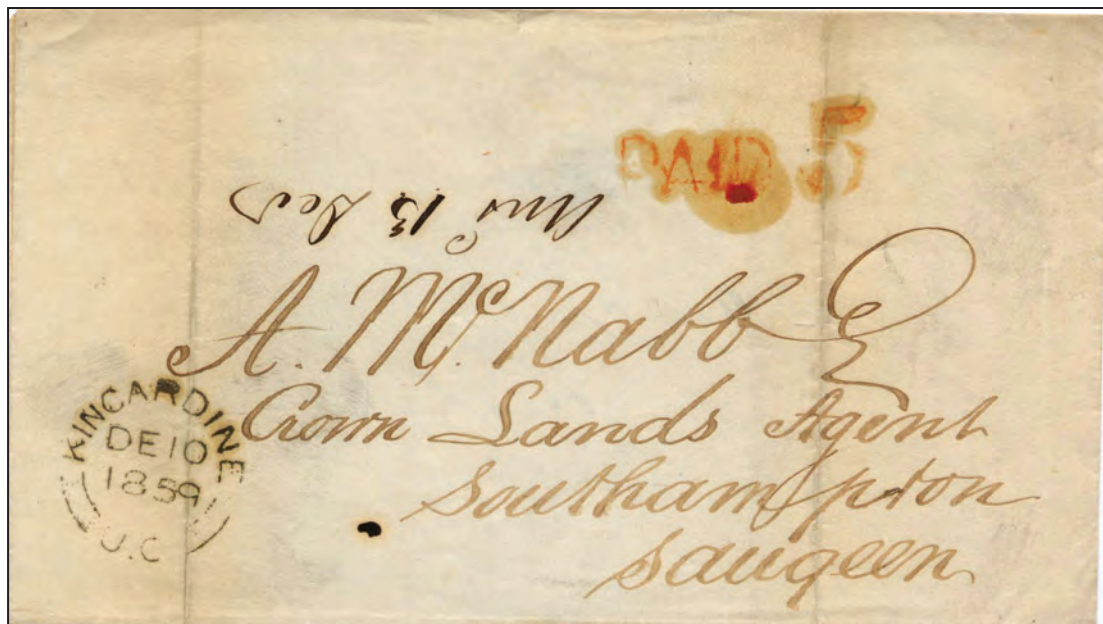 PAID 5
Ansd 13 Dec
A. McNabb Esq
Crown Lands Agent
Southampton
Saugeen
KINCARDINE
DE 10
1859
U.C